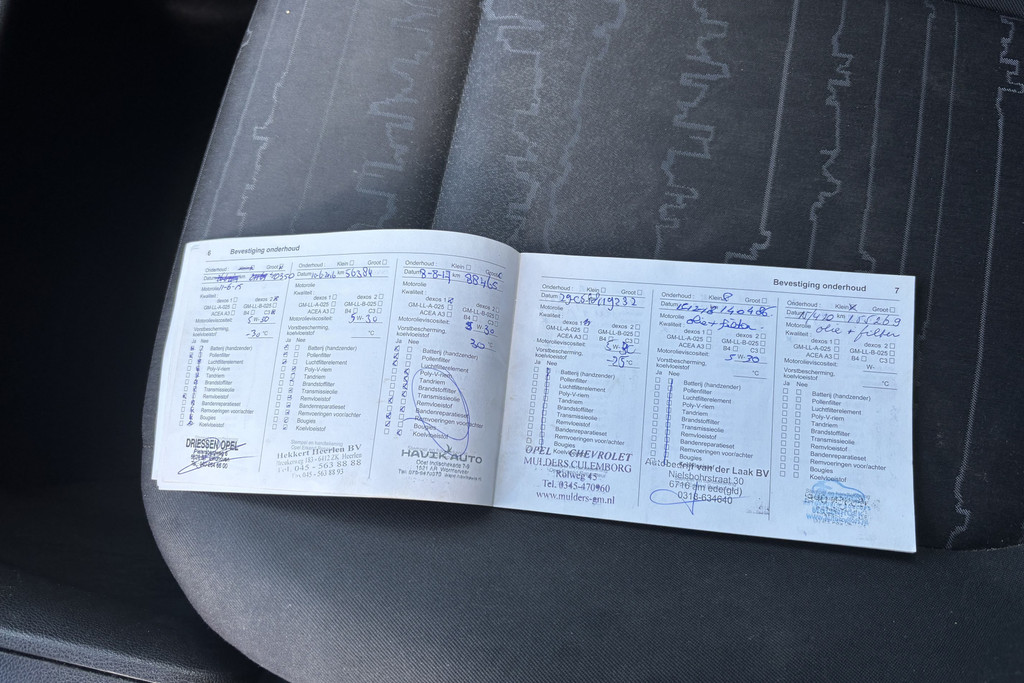 6 Bevestiging onderhoud
Onderhoud: Klein Groot
Datum km
11-8-15
Motorolie
Kwaliteit:
dexos 1 dexos 2
GM-LL-A-025 GM-LL-B-025
ACEA A3 B4 C3
Motorolieviscositeit:
5 W-30
Vorstbescherming,
koelvloeistof
-30 °C
Ja Nee
Batterij (handzender)
Pollenfilter
Luchtfilterelement
Poly-V-riem
Tandriem
Brandstoffilter
Transmissieolie
Remvloeistof
Bandenreparatieset
Remvoeringen voor/achter
Bougies
Koelvloeistof
DRIESSEN OPEL
Onderhoud: Klein Groot
Datum km 56384
Motorolie
Kwaliteit:
dexos 1 dexos 2
GM-LL-A-025 GM-LL-B-025
ACEA A3 B4 C3
Motorolieviscositeit:
5 W-30
Vorstbescherming,
koelvloeistof
°C
Ja Nee
Batterij (handzender)
Pollenfilter
Luchtfilterelement
Poly-V-riem
Tandriem
Brandstoffilter
Transmissieolie
Remvloeistof
Bandenreparatieset
Remvoeringen voor/achter
Bougies
Koelvloeistof
Hekkert Heerlen BV
Tel. 045 - 563 88 88
Fax 045 - 563 88 93
Onderhoud: Klein Groot
Datum 8-8-17 km 88465
Motorolie
Kwaliteit:
dexos 1 dexos 2
GM-LL-A-025 GM-LL-B-025
ACEA A3 B4 C3
Motorolieviscositeit:
5 W-30
Vorstbescherming,
koelvloeistof
30 °C
Ja Nee
Batterij (handzender)
Pollenfilter
Luchtfilterelement
Poly-V-riem
Tandriem
Brandstoffilter
Transmissieolie
Remvloeistof
Bandenreparatieset
Remvoeringen voor/achter
Bougies
Koelvloeistof
HAVIK AUTO
Bevestiging onderhoud 7
Onderhoud: Klein Groot
Datum km 119232
Motorolie
Kwaliteit:
dexos 1 dexos 2
GM-LL-A-025 GM-LL-B-025
ACEA A3 B4 C3
Motorolieviscositeit:
Vorstbescherming,
koelvloeistof
-25 °C
Ja Nee
Batterij (handzender)
Pollenfilter
Luchtfilterelement
Poly-V-riem
Tandriem
Brandstoffilter
Transmissieolie
Remvloeistof
Bandenreparatieset
Remvoeringen voor/achter
Bougies
Koelvloeistof
OPEL CHEVROLET
MULDERS CULEMBORG
Rolweg 45
Tel. 0345-470960
www.mulders-gm.nl
Onderhoud: Klein Groot
Datum km 140486
Motorolie olie + filter
Kwaliteit:
dexos 1 dexos 2
GM-LL-A-025 GM-LL-B-025
ACEA A3 B4 C3
Motorolieviscositeit:
5 W-30
Vorstbescherming,
koelvloeistof
°C
Ja Nee
Batterij (handzender)
Pollenfilter
Luchtfilterelement
Poly-V-riem
Tandriem
Brandstoffilter
Transmissieolie
Remvloeistof
Bandenreparatieset
Remvoeringen voor/achter
Bougies
Koelvloeistof
Autobedrijf van der Laak BV
Nielsbohrstraat 30
6716 am ede(gld)
0318-634640
Onderhoud: Klein Groot
Datum km
Motorolie olie + filter
Kwaliteit:
dexos 1 dexos 2
GM-LL-A-025 GM-LL-B-025
ACEA A3 B4 C3
Motorolieviscositeit:
W-
Vorstbescherming,
koelvloeistof
°C
Ja Nee
Batterij (handzender)
Pollenfilter
Luchtfilterelement
Poly-V-riem
Tandriem
Brandstoffilter
Transmissieolie
Remvloeistof
Bandenreparatieset
Remvoeringen voor/achter
Bougies
Koelvloeistof